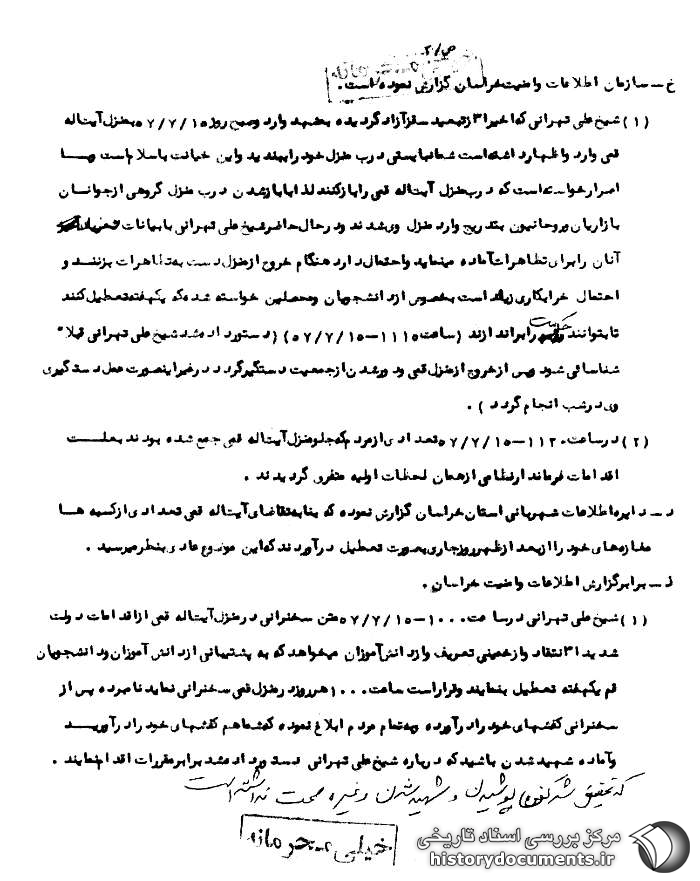 ص/۲۰
خیلی محرمانه
خ ــ سازمان اطلاعات وامنیت خراسان گزارش نموده است .
(۱) شیخ علی تهرانی که اخیرا" از تبعید سقز آزاد گردیده بمشهد وارد وصبح روز ۵۷/۷/۱۵ بمنزل آیت اله
قمی وارد واظهار داشته است شما نبایستی درب منزل خود را ببندید واین خیانت باسلام است و با
اصرار خواسته است که درب منزل آیت اله قمی را باز کنند لذا با باز شدن درب منزل گروهی از جوانان
بازاریان وروحانیون بتدریج وارد منزل وی شدند ودر حال حاضر شیخ علی تهرانی با بیانات تحریک آمیز
آنان را برای تظاهرات آماده مینماید واحتمال دارد هنگام خروج از منزل دست به تظاهرات بزنند و
احتمال خرابکاری زیاد است بخصوص از دانشجویان ومحصلین خواسته شده که یکهفته تعطیل کنند
تا بتوانند حکومت را براندازند (ساعت ۱۱۱۵-۵۷/۷/۱۵) (دستور داده شد شیخ علی تهرانی قبلا"
شناسائی شود وپس از خروج از منزل قمی ودور شدن از جمعیت دستگیر گردد در غیر اینصورت عمل دستگیری
وی در شب انجام گردد ) .
(۲) در ساعت ۱۱۲۰-۵۷/۷/۱۵ تعدادی از مردم که جلو منزل آیت اله قمی جمع شده بودند بعلت
اقدامات فرماندار نظامی از همان لحظات اولیه متفرق گردیدند .
د ــ دایره اطلاعات شهربانی استان خراسان گزارش نموده که بنا به تقاضای آیت اله قمی تعدادی از کسبه ها
مغازه های خود را از بعد از ظهر روز جاری بصورت تعطیل درآوردند که این موضوع عادی بنظر میرسید .
ذ ــ برابر گزارش اطلاعات وامنیت خراسان .
(۱) شیخ علی تهرانی در ساعت ۱۰۰۰-۵۷/۷/۱۵ متن سخنرانی در منزل آیت اله قمی از اقدامات دولت
شدیدا" انتقاد واز خمینی تعریف واز دانش آموزان میخواهد که به پشتیبانی از دانش آموزان ودانشجویان
قم یکهفته تعطیل بنمایند وقرار است ساعت ۱۰۰۰ هرروز در منزل قمی سخنرانی نماید نامبرده پس از
سخنرانی کفشهای خود را درآورده وبه تمام مردم ابلاغ نموده که شما هم کفشهای خود را درآورید
وآماده شهید شدن باشید که درباره شیخ علی تهرانی دستور داده شد برابر مقررات اقدام نمایند .
که تحقیق شد کفن پوشیدن و شهید شدن و غیره صحت نداشته است
خیلی محرمانه
مرکز بررسی اسناد تاریخی
historydocuments.ir